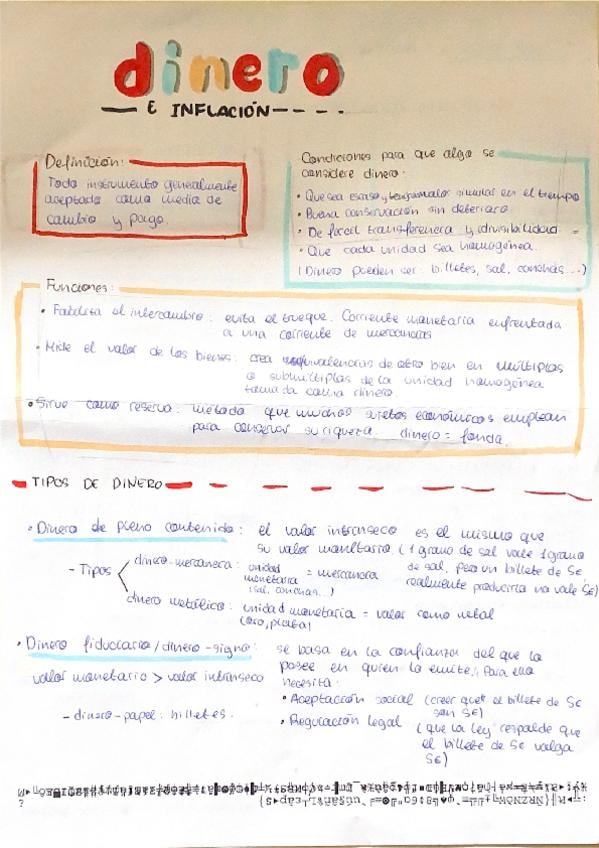 dinero
E INFLACIÓN
Definición:
Todo instrumento generalmente
aceptado como medio de
cambio y pago.
Condiciones para que algo se
considere dinero:
• Que sea escaso y tenga valor similar en el tiempo
• Buena conservación sin deterioro
• De fácil transferencia y divisibilidad
• Que cada unidad sea homogénea.
(Dinero pueden ser: billetes, sal, conchas...)
Funciones:
• Facilita el intercambio: evita el trueque. Corriente monetaria enfrentada
a una corriente de mercancías
• Mide el valor de los bienes: crea equivalencias de otro bien en múltiplos
o submúltiplos de la unidad homogénea
tomada como dinero
• Sirve como reserva: método que muchos sujetos económicos emplean
para conservar su riqueza. dinero = fondo.
TIPOS DE DINERO
• Dinero de pleno contenido: el valor intrínseco es el mismo que
su valor monetario. (1 grano de sal vale 1 grano
de sal, pero un billete de 5€
realmente producirlo no vale 5€)
- Tipos
dinero-mercancía: unidad
monetaria = mercancía
(sal, conchas...)
dinero metálico: unidad monetaria = valor como metal
(oro, plata)
• Dinero fiduciario/dinero-signo: se basa en la confianza del que lo
posee en quien lo emite. Para ello
necesita:
valor monetario > valor intrínseco
• Aceptación social (creer que el billete de 5€
son 5€)
- dinero-papel: billetes.
• Regulación legal (que la ley respalde que
el billete de 5€ valga
5€)